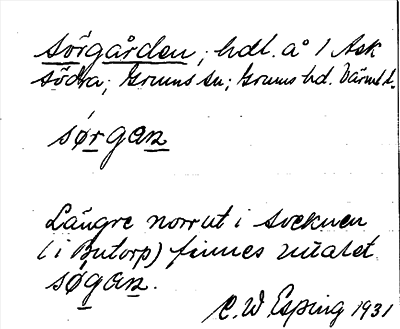 Sörgården, hdl. å 1 Ask
södra; Grums sn; Grums hd. Värml. l.
sørgan
Längre norrut i socknen
(i Butorp) finnes uttalet
søgan.
C. W Esping 1931